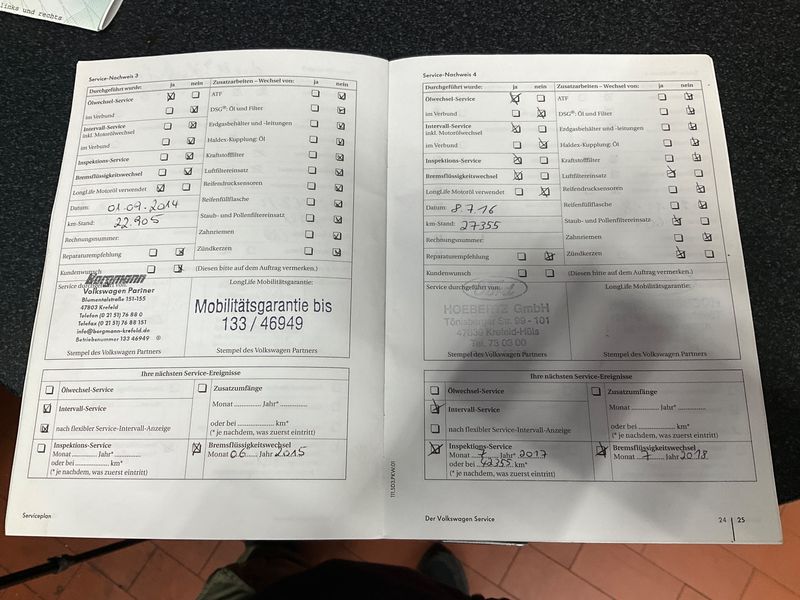 links und rechts
Service-Nachweis 3
Durchgeführt wurde: ja nein
Ölwechsel-Service
im Verbund
Intervall-Service
inkl. Motorölwechsel
im Verbund
Inspektions-Service
Bremsflüssigkeitswechsel
LongLife Motoröl verwendet
Datum: 01.09.2014
km-Stand: 22.905
Rechnungsnummer:
Reparaturempfehlung
Kundenwunsch
Zusatzarbeiten – Wechsel von: ja nein
ATF
DSG®: Öl und Filter
Erdgasbehälter und -leitungen
Haldex-Kupplung: Öl
Kraftstofffilter
Luftfiltereinsatz
Reifendrucksensoren
Reifenfüllflasche
Staub- und Pollenfiltereinsatz
Zahnriemen
Zündkerzen
(Diesen bitte auf dem Auftrag vermerken.)
Service durchgeführt von:
Borgmann
Volkswagen Partner
Blumentalstraße 151-155
47803 Krefeld
Telefon (0 21 51) 76 88 0
Telefax (0 21 51) 76 88 151
info@borgmann-krefeld.de
Betriebsnummer 133 46949
Stempel des Volkswagen Partners
LongLife Mobilitätsgarantie:
Mobilitätsgarantie bis
133 / 46949
Stempel des Volkswagen Partners
Ihre nächsten Service-Ereignisse
Ölwechsel-Service
Intervall-Service
nach flexibler Service-Intervall-Anzeige
Zusatzumfänge
Monat .............. Jahr* ..............
oder bei .................... km*
(* je nachdem, was zuerst eintritt)
Inspektions-Service
Monat .............. Jahr* ..............
oder bei .................... km*
(* je nachdem, was zuerst eintritt)
Bremsflüssigkeitswechsel
Monat 06 Jahr 2015
Serviceplan
111.5D3.PKW.01
Service-Nachweis 4
Durchgeführt wurde: ja nein
Ölwechsel-Service
im Verbund
Intervall-Service
inkl. Motorölwechsel
im Verbund
Inspektions-Service
Bremsflüssigkeitswechsel
LongLife Motoröl verwendet
Datum: 8.7.16
km-Stand: 27355
Rechnungsnummer:
Reparaturempfehlung
Kundenwunsch
Zusatzarbeiten – Wechsel von: ja nein
ATF
DSG®: Öl und Filter
Erdgasbehälter und -leitungen
Haldex-Kupplung: Öl
Kraftstofffilter
Luftfiltereinsatz
Reifendrucksensoren
Reifenfüllflasche
Staub- und Pollenfiltereinsatz
Zahnriemen
Zündkerzen
(Diesen bitte auf dem Auftrag vermerken.)
Service durchgeführt von:
HOEBERTZ GmbH
Tönisberger Str. 99 - 101
47839 Krefeld-Hüls
Tel. 73 03 00
Stempel des Volkswagen Partners
LongLife Mobilitätsgarantie:
Stempel des Volkswagen Partners
Ihre nächsten Service-Ereignisse
Ölwechsel-Service
Intervall-Service
nach flexibler Service-Intervall-Anzeige
Zusatzumfänge
Monat .............. Jahr* ..............
oder bei .................... km*
(* je nachdem, was zuerst eintritt)
Inspektions-Service
Monat 7 Jahr* 2017
oder bei 42355 km*
(* je nachdem, was zuerst eintritt)
Bremsflüssigkeitswechsel
Monat 7 Jahr 2018
Der Volkswagen Service
24 | 25